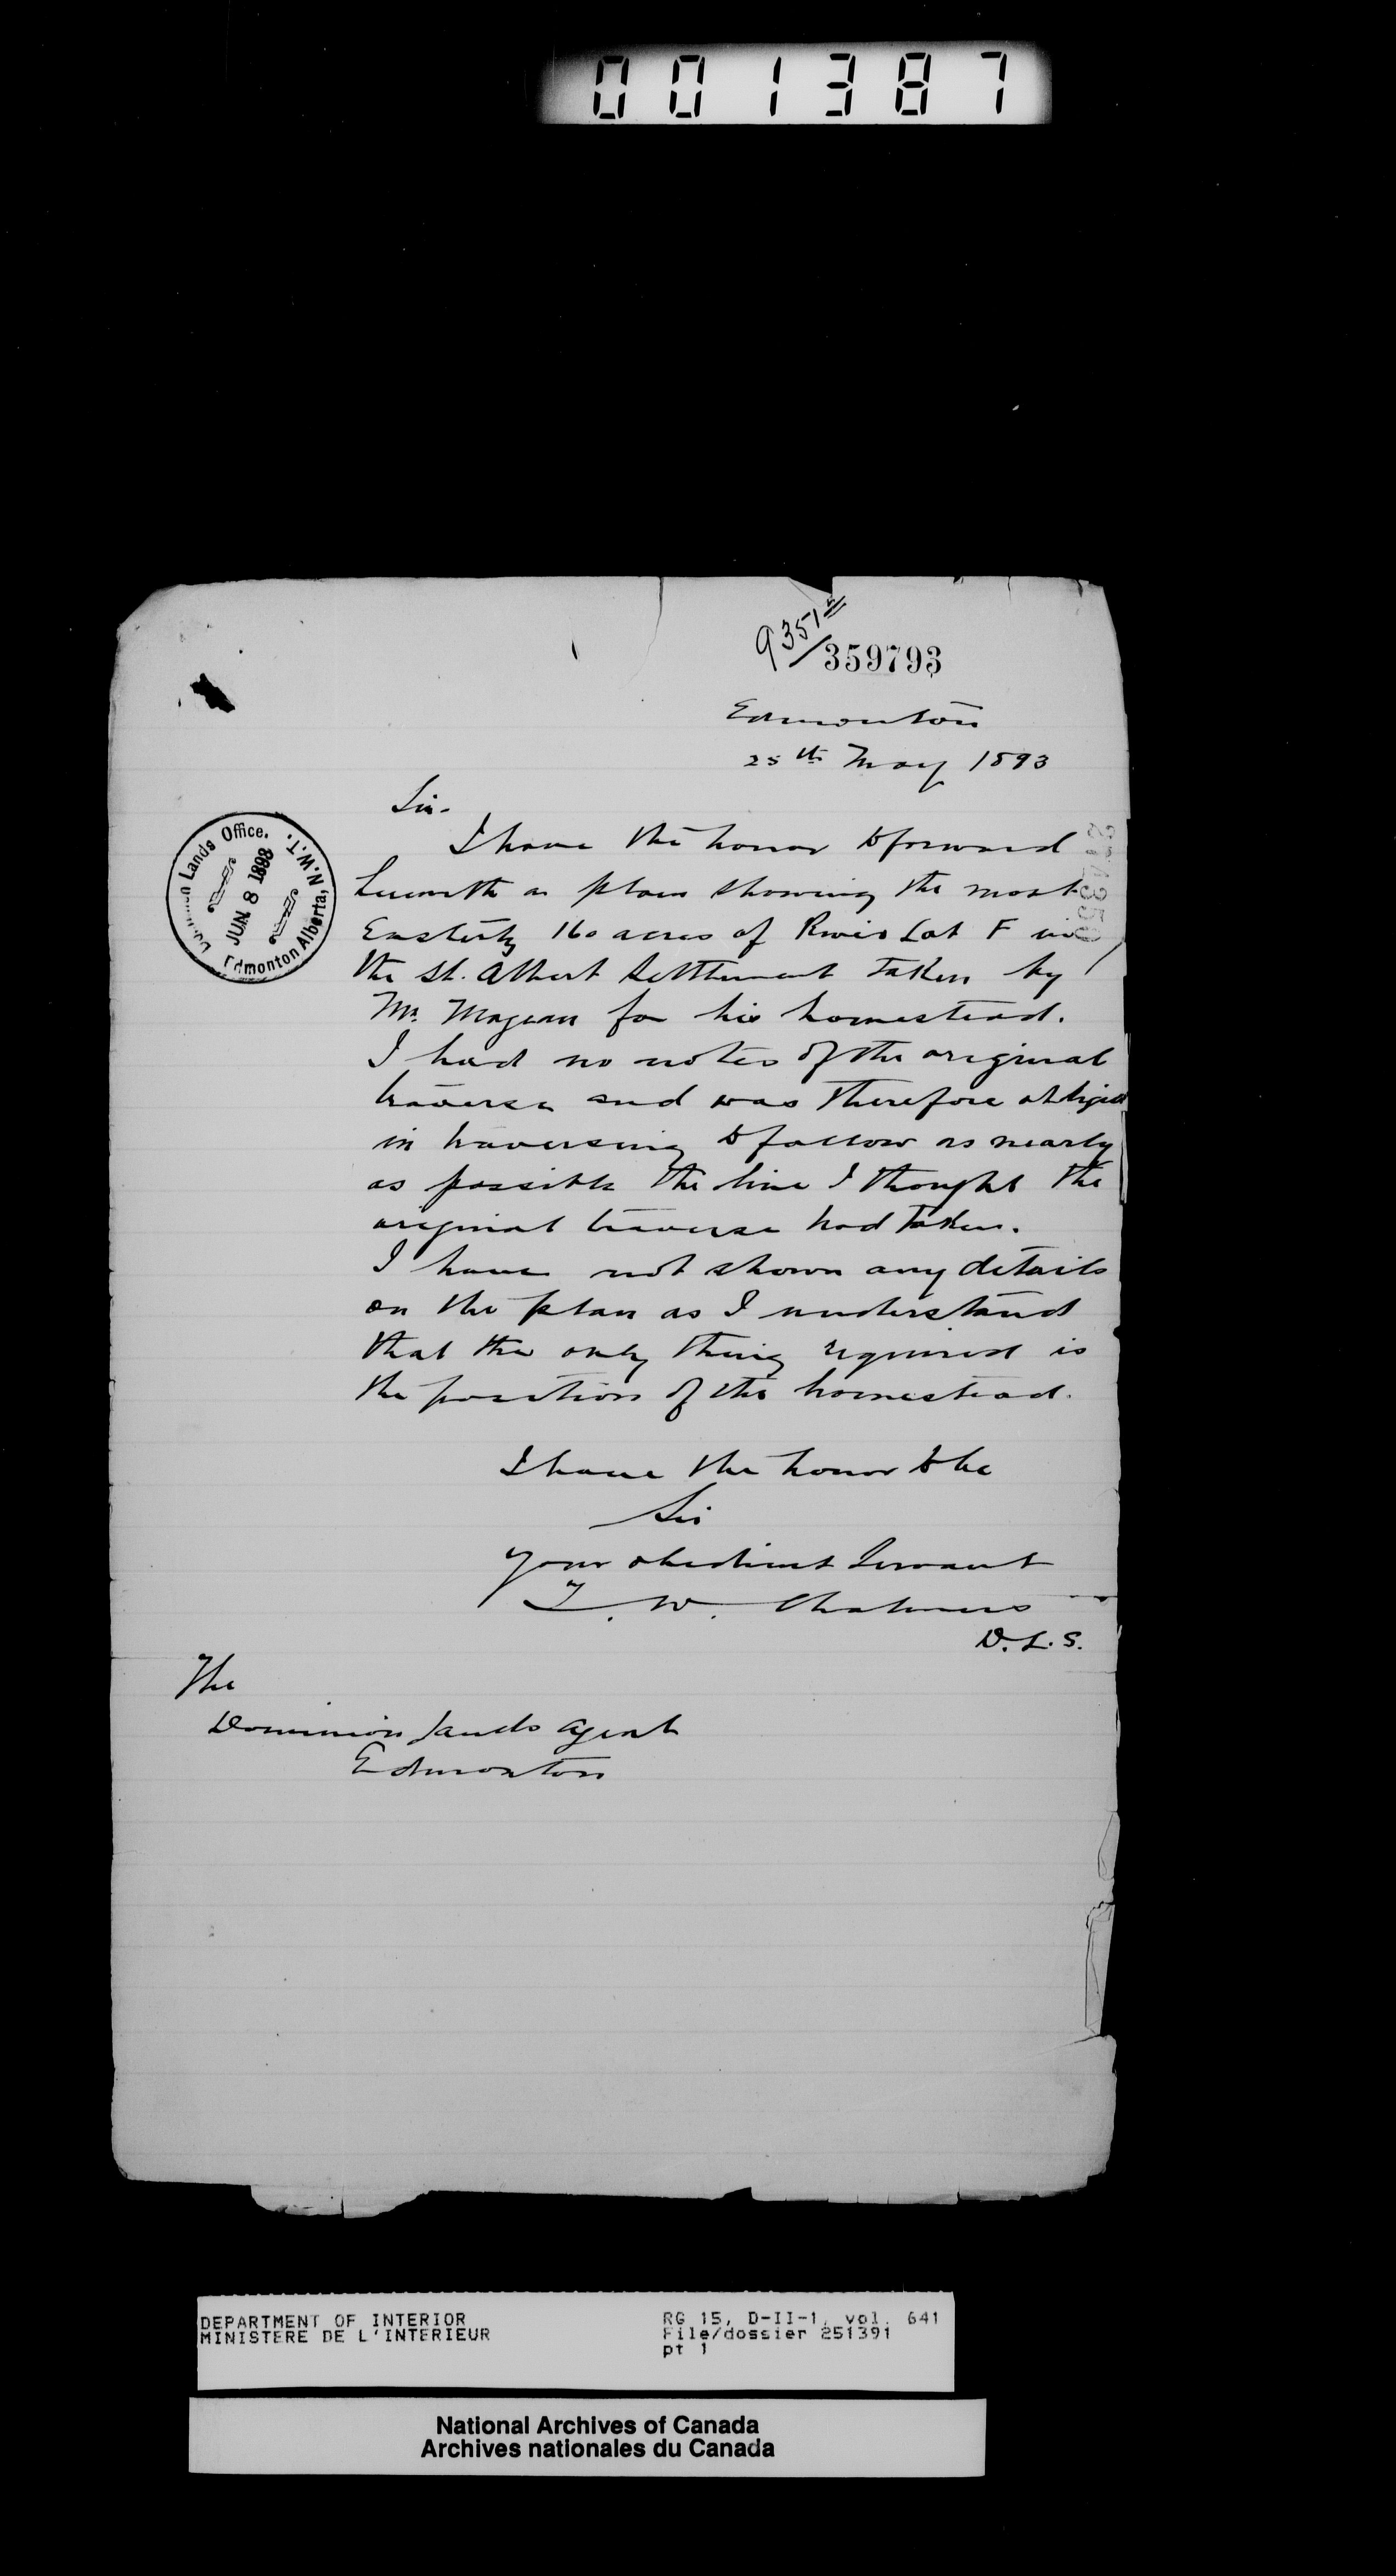 001387
9351
359793
Edmonton
25th May 1893
Sir.
I have the honor to forward
herewith a plan showing the most
Easterly 160 acres of River Lot F in
the St. Albert Settlement taken by
Mr. Magean for his homestead.
I had no notes of the original
traverse and was therefore obliged
in traversing to follow as nearly
as possible the line I thought the
original traverse had taken.
I have not shown any details
on the plan as I understand
that the only thing required is
the position of the homestead.
I have the honor to be
Sir
Your obedient Servant
T. W. Chalmers
D.L.S.
The
Dominion Lands Agent
Edmonton
Lands Office.
JUN 8 1893
Edmonton Alberta, N.W.T.
DEPARTMENT OF INTERIOR
MINISTERE DE L'INTERIEUR
RG 15, D-II-1, vol. 641
File/dossier 251391
pt 1
National Archives of Canada
Archives nationales du Canada